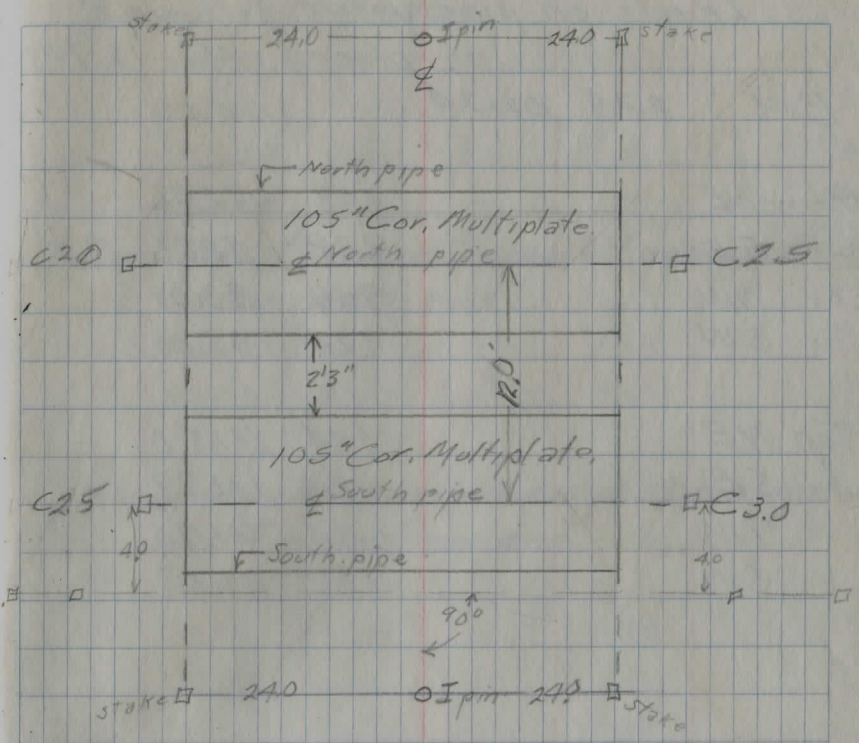 stake 24.0 I pin 24.0 stake
℄
North pipe
105" Cor. Multiplate.
C2.0 ℄ North pipe C2.5
2'3" 12.0'
105" Cor. Multiplate.
C2.5 ℄ South pipe C3.0
4.0 South pipe 4.0
90°
stake 24.0 I pin 24.0 stake